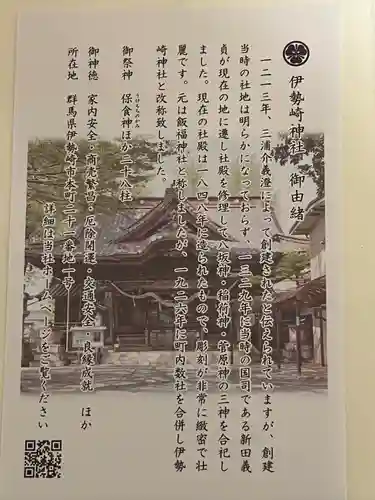 伊勢崎神社 御由緒
一二一三年、三浦介義澄によって創建されたと伝えられていますが、創建
当時の社地は明らかになっておらず、一三二九年に当時の国司である新田義
貞が現在の地に遷し社殿を修理して八坂神・稲荷神・菅原神の三神を合祀し
ました。現在の社殿は一八四八年に造られたもので、彫刻が非常に緻密で壮
麗です。元は飯福神社と称しましたが、一九二六年に町内数社を合併し伊勢
崎神社と改称致しました。
御祭神 保食神ほか二十八柱
うけもちのかみ
御神徳 家内安全・商売繁昌・厄除開運・交通安全・良縁成就 ほか
所在地 群馬県伊勢崎市本町二十一番地一号
詳細は当社ホームページをご覧ください